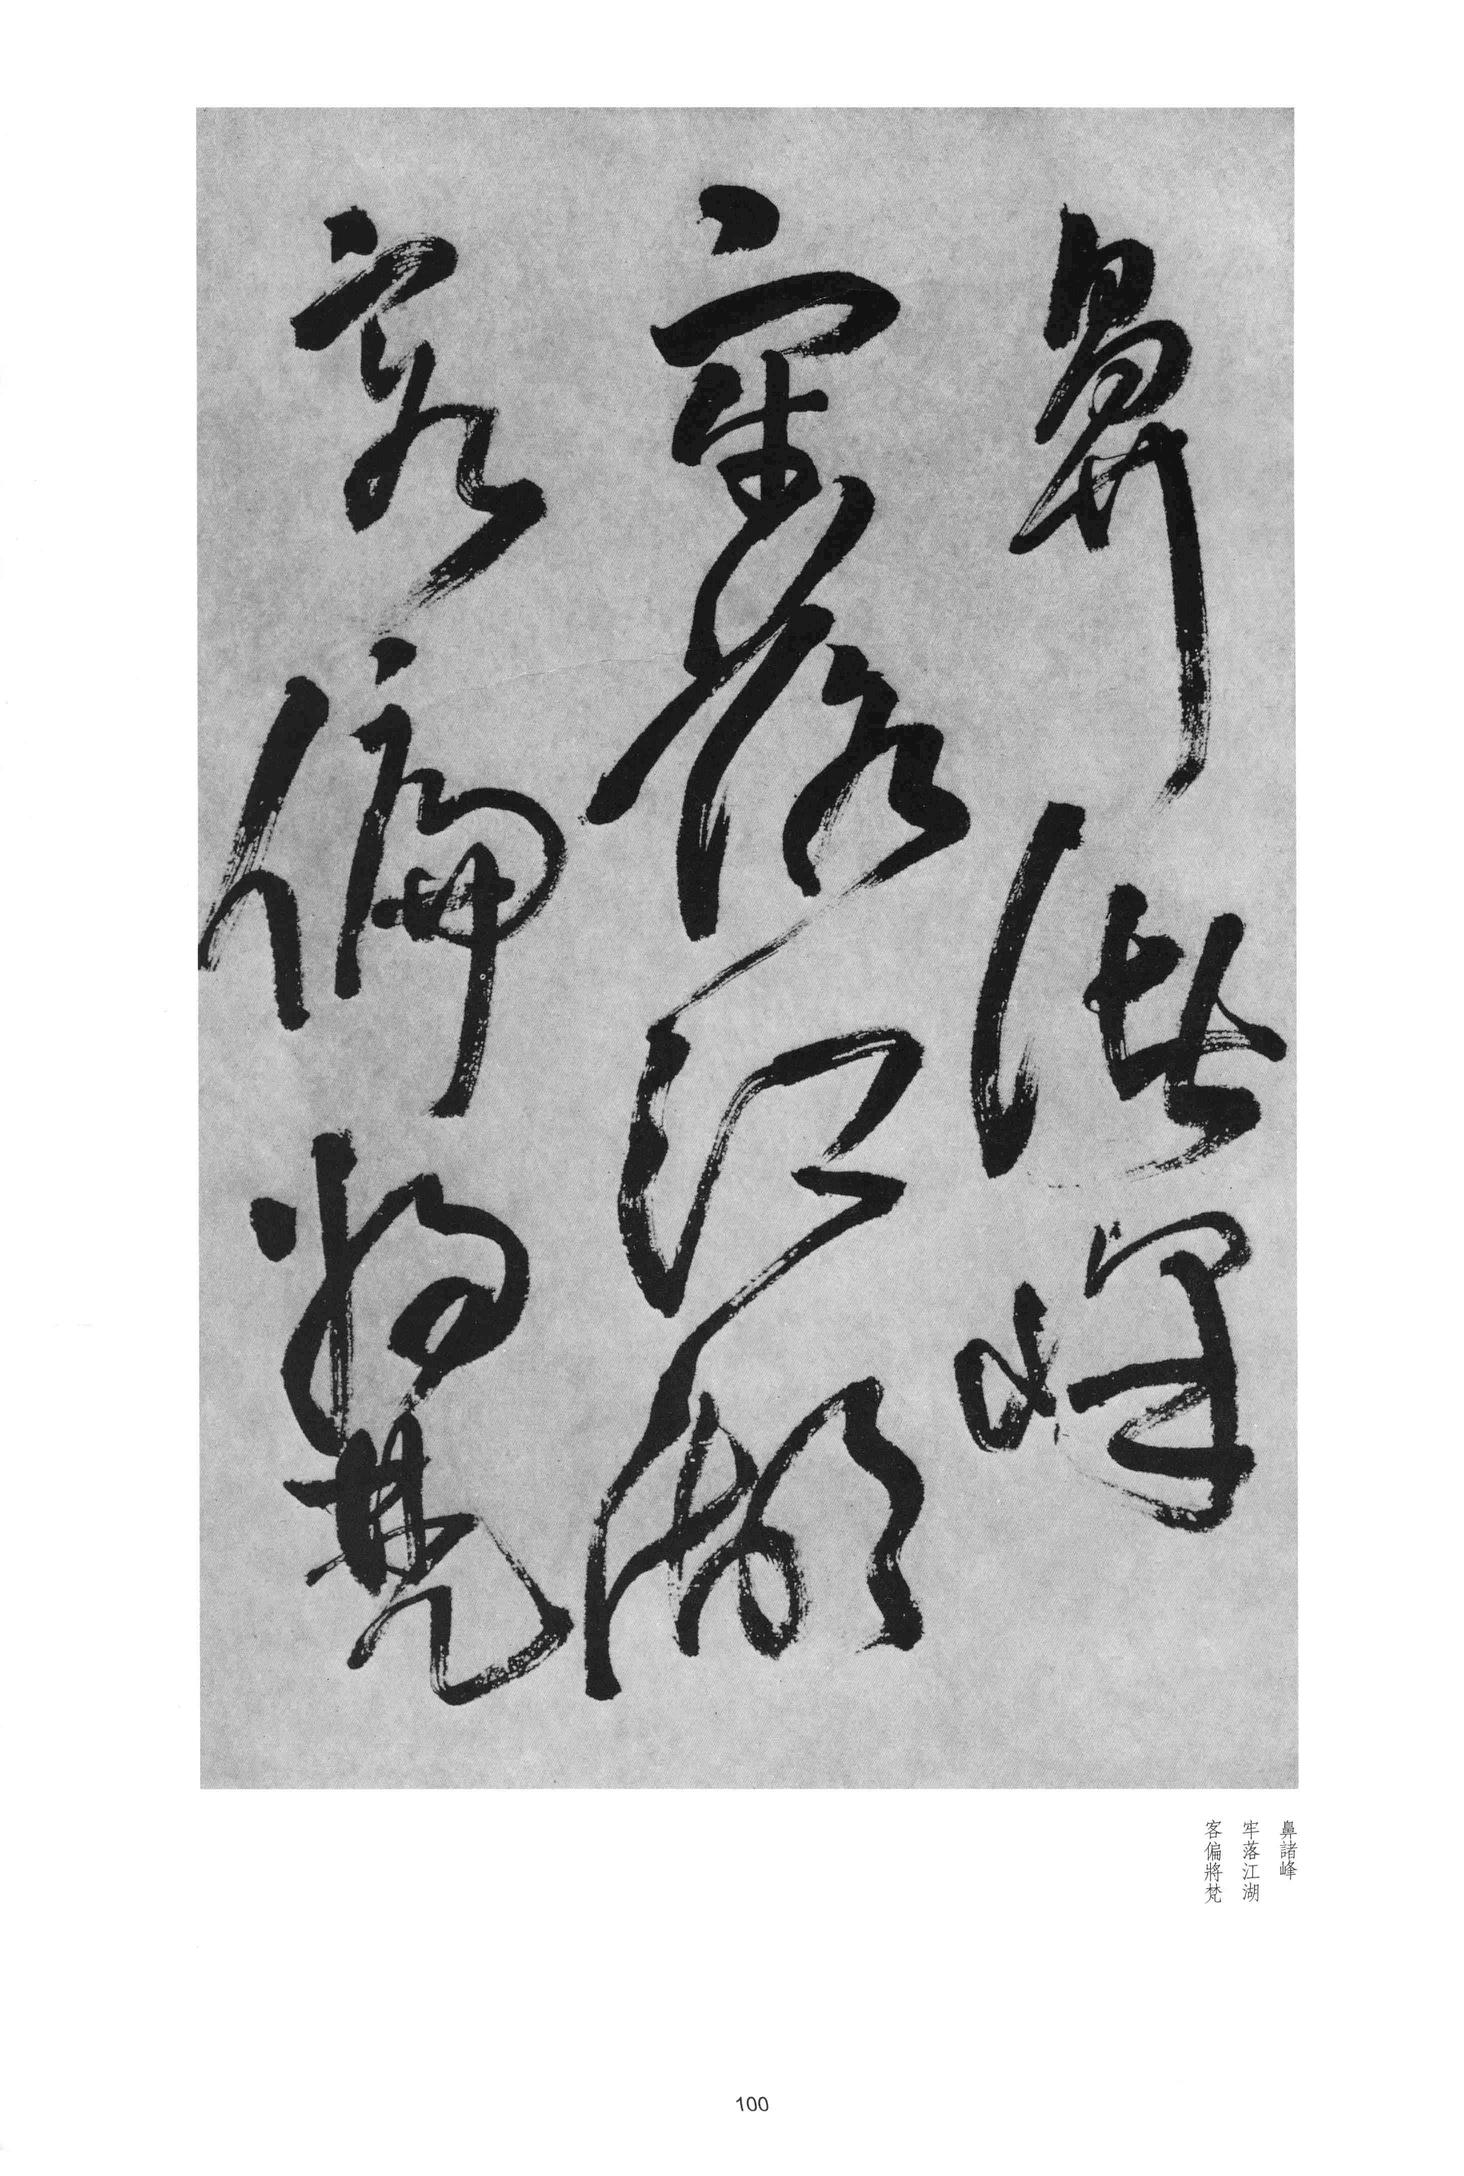 鼻諸峰
牢落江湖
客偏將梵
鼻諸峰
牢落江湖
客偏將梵
100